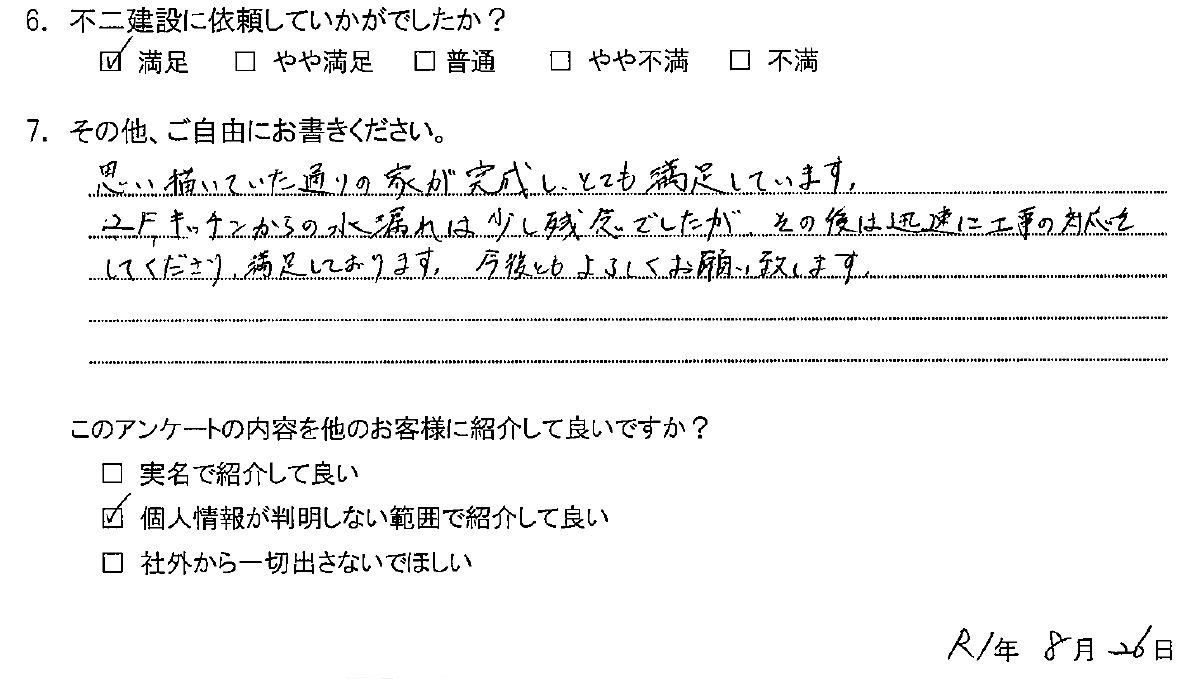 6. 不二建設に依頼していかがでしたか？
☑ 満足 □ やや満足 □ 普通 □ やや不満 □ 不満
7. その他、ご自由にお書きください。
思い描いていた通りの家が完成し、とても満足しています。
2F、キッチンからの水漏れは少し残念でしたが、その後は迅速に工事の対応を
してくださり、満足しております。今後ともよろしくお願い致します。
このアンケートの内容を他のお客様に紹介して良いですか？
□ 実名で紹介して良い
☑ 個人情報が判明しない範囲で紹介して良い
□ 社外から一切出さないでほしい
R1年 8月 26日